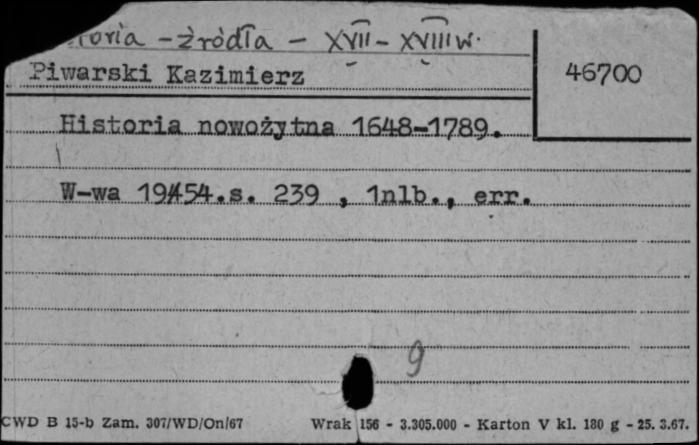 toria - źródła - XVII - XVIII w.
Piwarski Kazimierz
46700
Historia nowożytna 1648-1789.
W-wa 1954.s. 239 , 1nlb., err.
9
CWD B 15-b Zam. 307/WD/On/67 Wrak 156 - 3.305.000 - Karton V kl. 180 g - 25. 3.67.